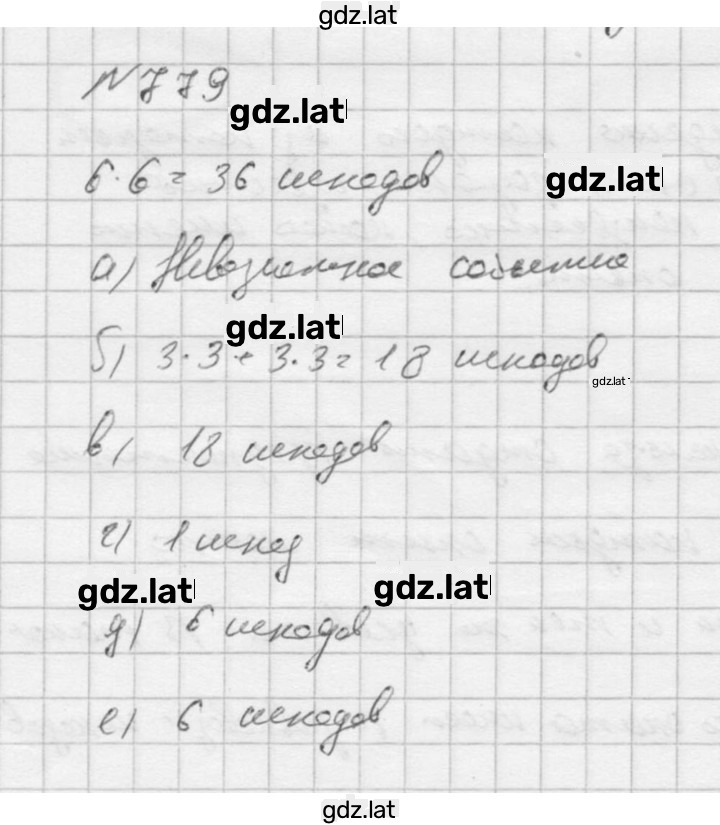 gdz.lat
№779
gdz.lat
6·6=36 исходов
gdz.lat
а) Невозможное событие
gdz.lat
б) 3·3+3·3=18 исходов
gdz.lat
в) 18 исходов
г) 1 исход
gdz.lat gdz.lat
д) 6 исходов
е) 6 исходов
gdz.lat